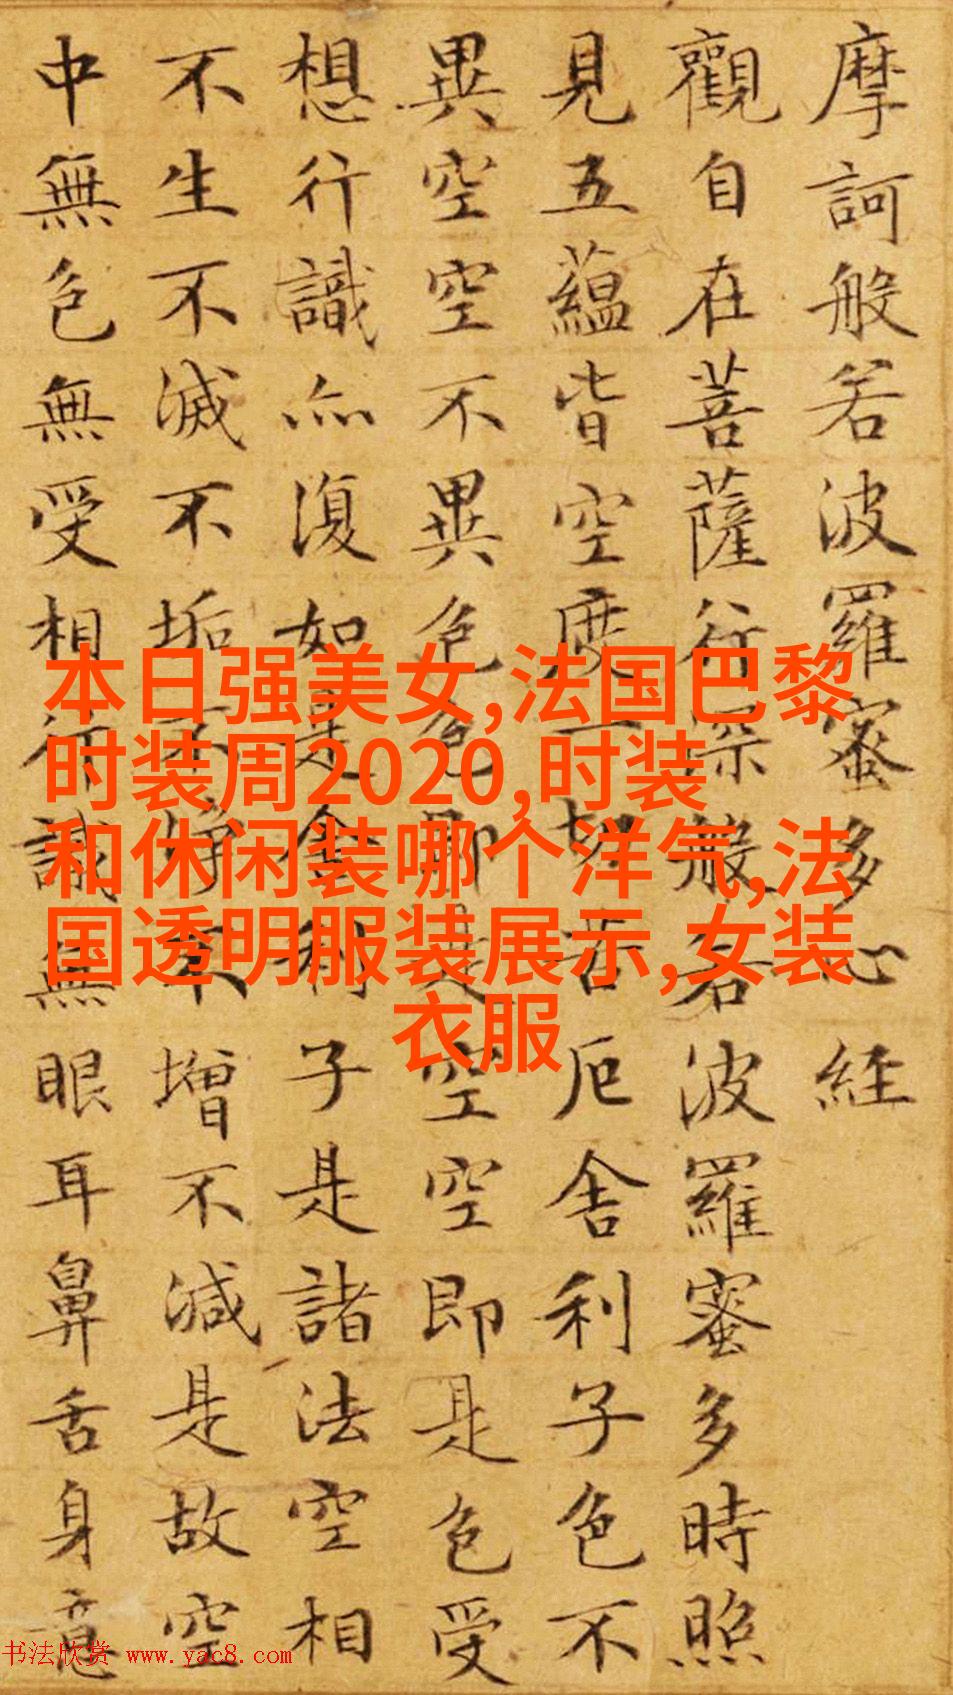 摩訶般若波羅蜜多心經
觀自在菩薩行深般若波羅蜜多時照
見五蘊皆空度一切苦厄舍利子色不
異空空不異色色即是空空即是色受
想行識亦復如是舍利子是諸法空相
不生不滅不垢不淨不增不減是故空
中無色無受相行識無眼耳鼻舌身意
本日强美女,法国巴黎
时装周2020,时装
和休闲装哪个洋气,法
国透明服装展示,女装
衣服
书法欣赏 www.yac8.com